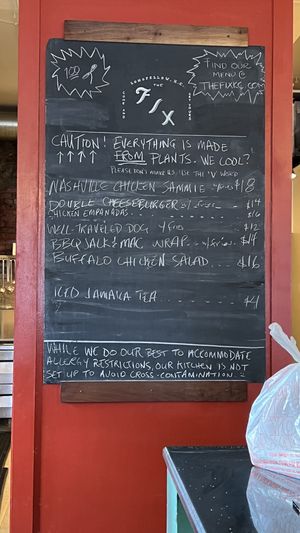 SONGFELLOW, N.C.
THE
FIX
COME AND
GET SOME
FIND OUR
MENU @
THEFIXKC.COM
CAUTION! EVERYTHING IS MADE
↑↑↑↑ FROM PLANTS. WE COOL?
PLEASE DON'T MAKE US USE THE "V" WORD
NASHVILLE CHICKEN SAMMIE w/fries $18
DOUBLE CHEESEBURGER w/fries - $14
CHICKEN EMPANADAS. - - - - - $16
WELL-TRAVELED DOG w/fries - - $12
BBQ JACK & MAC WRAP. - w/fries - $14
BUFFALO CHICKEN SALAD... $16
ICED JAMAICA TEA . . - - - - - $4
WHILE WE DO OUR BEST TO ACCOMMODATE
ALLERGY RESTRICTIONS, OUR KITCHEN IS NOT
SET UP TO AVOID CROSS-CONTAMINATION.